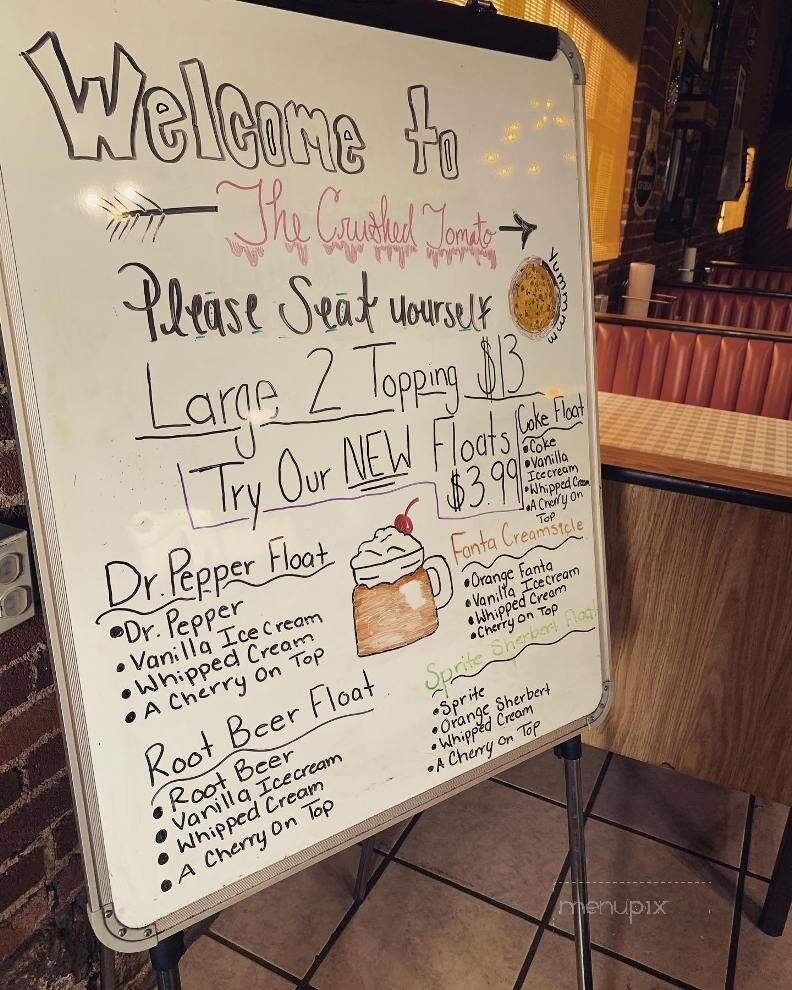 Welcome to
The Crushed Tomato
Please Seat yourself
Yummmmm
Large 2 Topping $13
Try Our NEW Floats
$3.99
Coke Float
•Coke
•Vanilla
Icecream
•Whipped Cream
•A Cherry On
Top
Dr. Pepper Float
•Dr. Pepper
•Vanilla Ice Cream
•Whipped Cream
•A Cherry On Top
Fanta Creamsicle
•Orange Fanta
•Vanilla Icecream
•Whipped Cream
•Cherry on Top
Root Beer Float
•Root Beer
•Vanilla Icecream
•Whipped Cream
•A Cherry On Top
Sprite Sherbert Float
•Sprite
•Orange Sherbert
•Whipped Cream
•A Cherry on Top
menupix